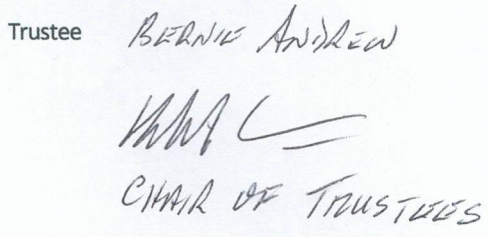 Trustee BERNIE ANDREW
CHAIR OF TRUSTEES